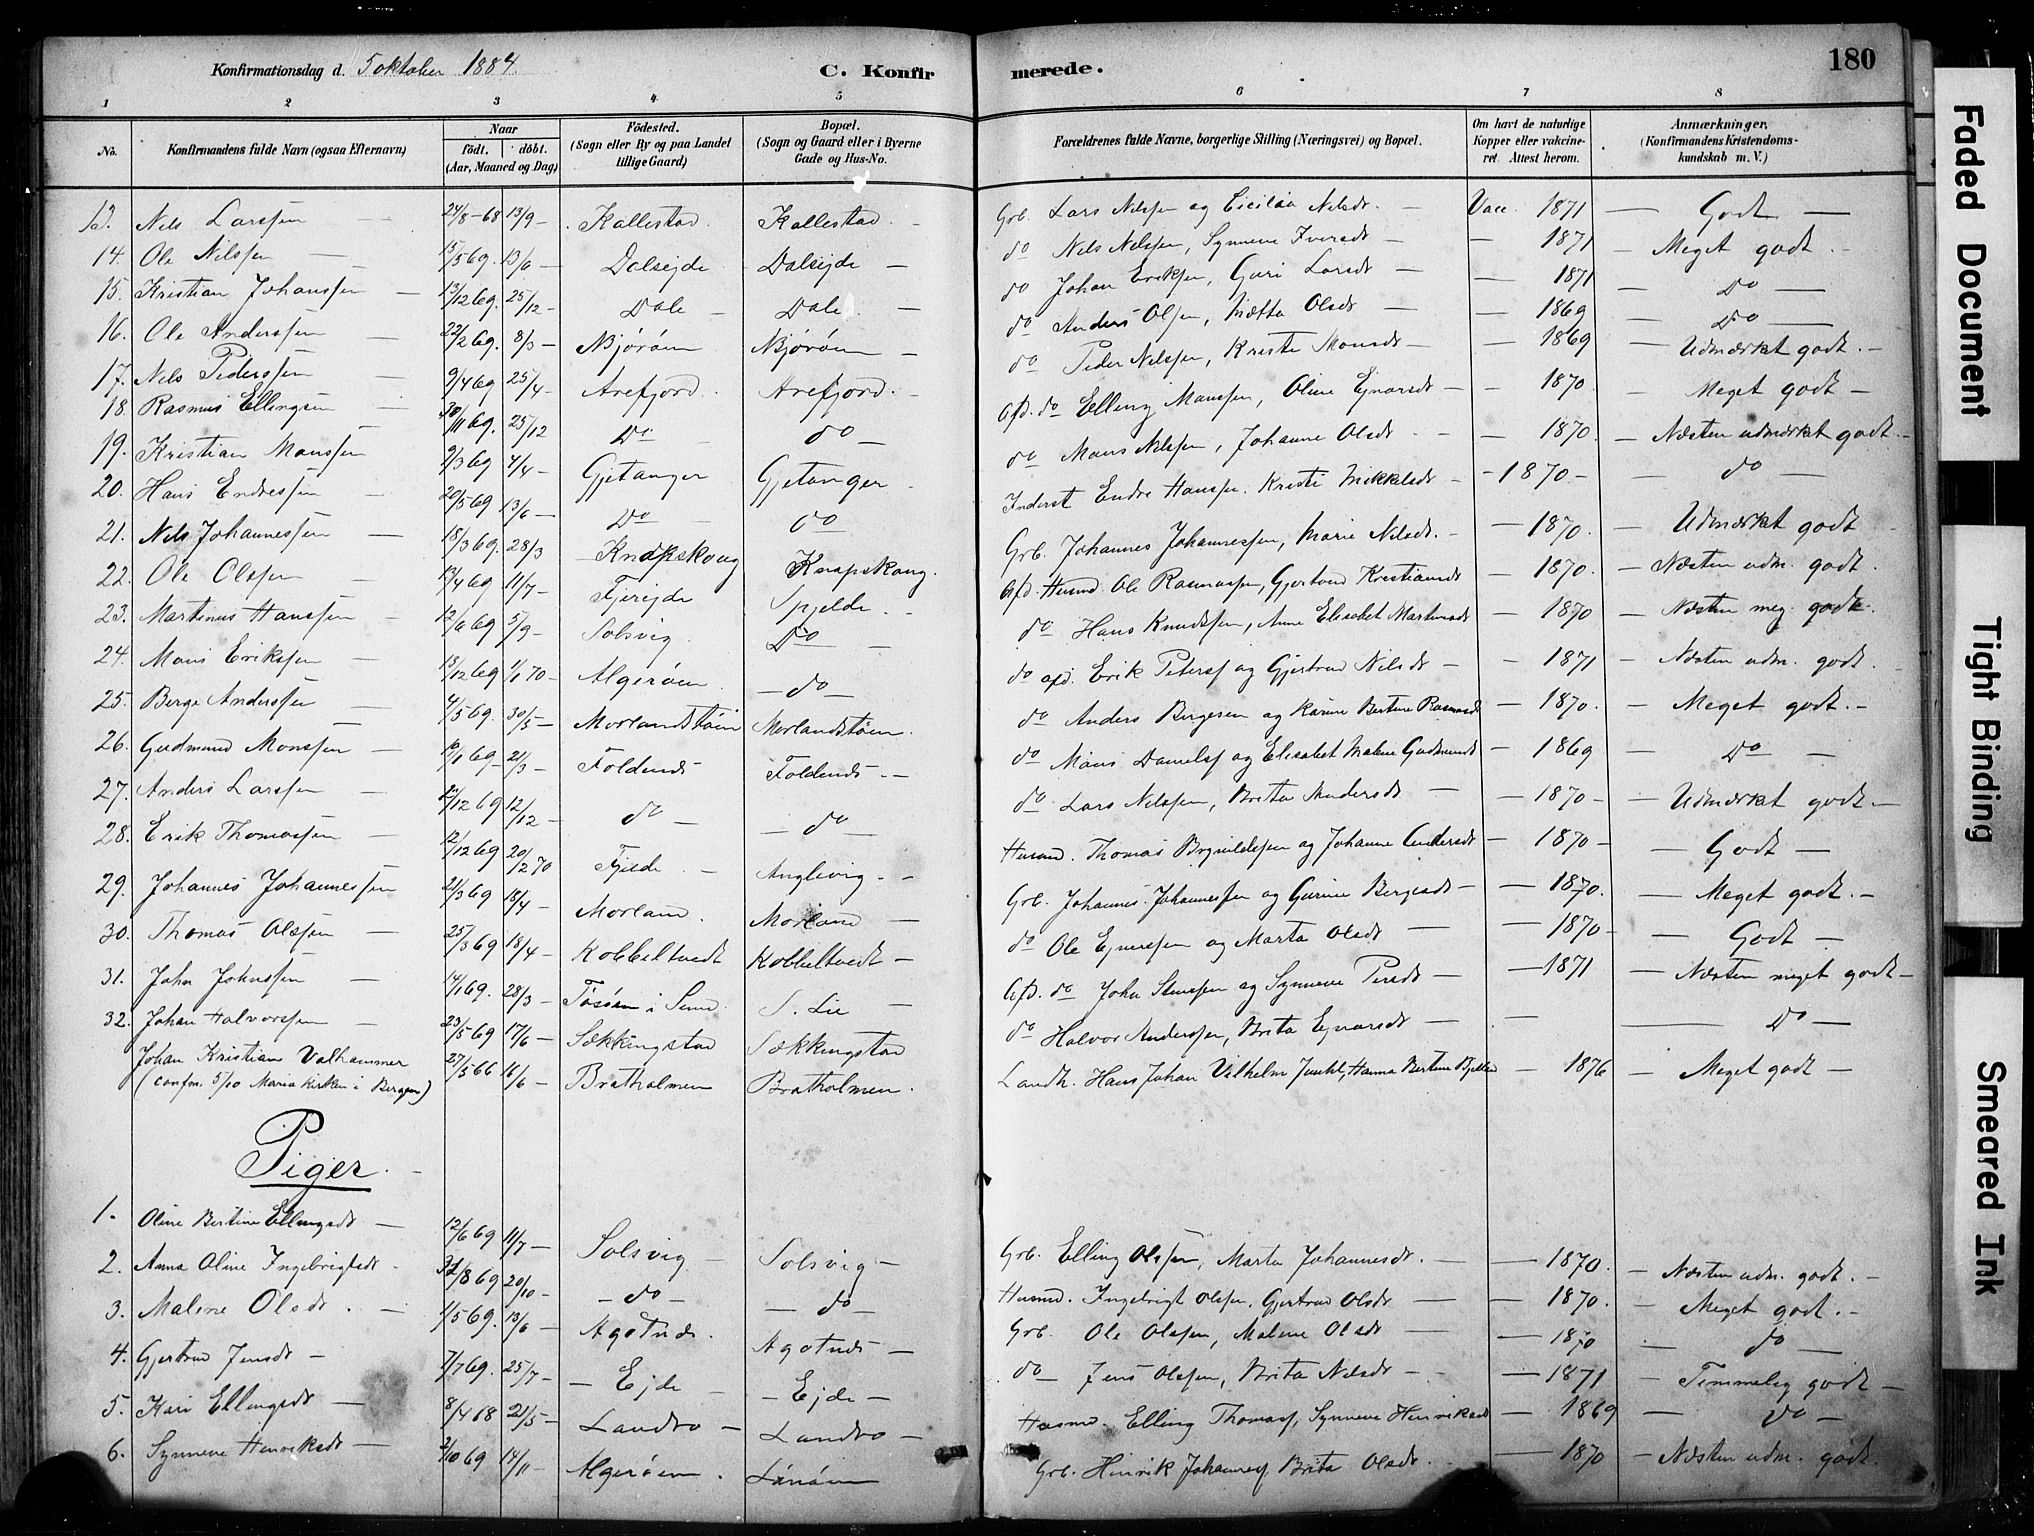 Konfirmationsdag d. 5 oktober 1884. C. Konfirmerede. 180
1 2 3 4 5 6 7 8
No. Konfirmandens fulde Navn (ogsaa Efternavn) Naar födt. döbt. (Aar, Maaned og Dag) Födested. (Sogn eller By og paa Landet tillige Gaard) Bopæl. (Sogn og Gaard eller i Byerne Gade og Hus-No. Forældrenes fulde Navne, borgerlige Stilling (Næringsvei) og Bopæl. Om havt de naturlige Kopper eller vakcineret. Attest herom. Anmærkninger. (Konfirmandens Kristendomskundskab m. V.)
13. Nels Larssen 24/8-68 13/9 - Kallestad. Kallestad. Grb. Lars Nilssen og Nilsdt. - Vacc. 1871 - Godt -
14. Ole Nilssen 15/5 69. 13/6 - Dalsejde Dalsejde - do Nels Nilssen, Synneve Iversdt - 1871 - Meget godt. -
15. Kristian Johanssen - 13/12 69. 25/12 - Dale Dale. - do Johan Eriksen, Guri Larsdt - 1871 - Do -
16. Ole Anderssen 22/2 69. 8/3 - Bjøröen Bjøröen - do Anders Olsen, Mætta Olsdt - 1869 - Do -
17. Nels Pederssen 9/4 69 25/4 - Arefjord. Arefjord. - do Peder Nilssen, Kristi Monsdt - 1869 - Udmærket godt. -
18. Rasmus Ellingsen 30/11 69. 25/12 Do do - Afd. do Elling Monssen, Oline Ejnarsdt - 1870. - Meget godt -
19. Kristian Monssen 9/3 69 4/4 - Gjetanger Gjetanger - do Mons Nilssen, Johanne Olsdt - 1870. - Næsten udmærket godt. -
20. Hans Endressen 20/5 69 13/6 - Do do Inderst Endre Hanssen. Kristi Mikkelsdt - 1870 - do -
21. Nels Johannessen 18/3 69. 28/3 - Knapskoug Knapskoug. Grb. Johannes Johannessen, Marie Nilsdt. - 1870. - Udmærket godt
22. Ole Olssen 13/4 69 11/7 - Fjerejde Spjelde. - Afd. Husmd. Ole Rasmussen, Gjertrud Kristiansdt - 1870. - Næsten udm. godt.
23. Martinus Hanssen - 12/6 69 5/9 - Solsvig. Do - do Hans Knudssen, Anne Elisabet Martinusdt - 1870 - Næsten meg. godt.
24. Mons Erikssen - 13/12 69 1/1 70 - Algeröen. - do - do afd. Erik Peterss og Gjertrud Nilsdt - 1871 - Næsten udm. godt.
25. Berge Anderssen - 4/5 69. 30/5 - Morlandstöen Morlandstöen. do Anders Bergesen og Karine Bertine Rasmusdt - 1870. - Meget godt. -
26. Gudmund Monssen - 21/3 - Foldends Foldends. - do Mons Danielss og Elisabet Malene Gudmundsdt - 1869 - Do -
27. Anders Larssen - 12/12 do - - do - do Lars Nilssen, Brita Andersdt - 1870 - - Udmærket godt -
28. Erik Thomassen - 12/12 69 20/2 70 Fjelde - Anglevig. - Husmd. Thomas Brynildssen og Johanne Andersdt - 1870 - - Godt -
29. Johannes Johannessen 21/3 69 18/4 - Morland. Morland - Grb. Johannes Johannessen og Gurine Bergesdt - 1870. - Meget godt. -
30. Thomas Olssen - 25/3 69 18/4 - Kobbeltvedt Kobbeltvedt - do Ole Ejnersen og Marta Olsdt - 1870 - - Godt -
31. John Johnssen - 14/1 69. 28/3 - Tösöen i Sund. S. Lie - Afd. do John Stenssen og Synneve Persdt - 1871 - Næsten meget godt -
32. Johan Halvorssen - 23/5 69 17/6 - Sækkingstad Sækkingstad do Halvor Anderssen, Brita Ejnarsdt - - Do -
Johan Kristian Valhammer 27/5 66 16/6 - Bratholmen Bratholmen. Landh. Hans Johan Vilhelm Juuhl, Hanna Bertine - 1876 - Meget godt -
(confm. 5/10 Maria Kirken i Bergen)
Piger.
1. Oline Bertine Ellingsdt - 12/6 69 11/7 - Solsvig - Solsvig - Grb. Elling Olssen, Marta Johannesdt. - 1870. - Næsten udm. godt. -
2. Anna Oline Ingebrigtsdt - /8 69 20/10 - - do - - do - Husmd. Ingebrigt Olssen, Gjertrud Olsdt - 1870. - Meget godt. -
3. Malene Olsdt. - 1/5 69. 13/6 - Agotnds. Agotnds - Grb. Ole Olssen, Malene Olsdt - 1870 - do -
4. Gjertrud Jensdt - 7/7 69. 25/7 - - Ejde - Ejde - do Jens Olssen, Brita Nilsdt - 1871 - Temmelig godt -
5. Kari Ellingsdt - 8/4 68 21/5 - Landro - Landro - Husmd. Elling Thomass, Synneve Henriksdt - 1869 - Do -
6. Synneve Henriksdt - 2/10 69 14/11 - Algeröen. Lönöen Grb. Hinrik Johanness, Brita Olsdt. - 1870 - Næsten udm. godt.
Faded Document
Tight Binding
Smeared Ink